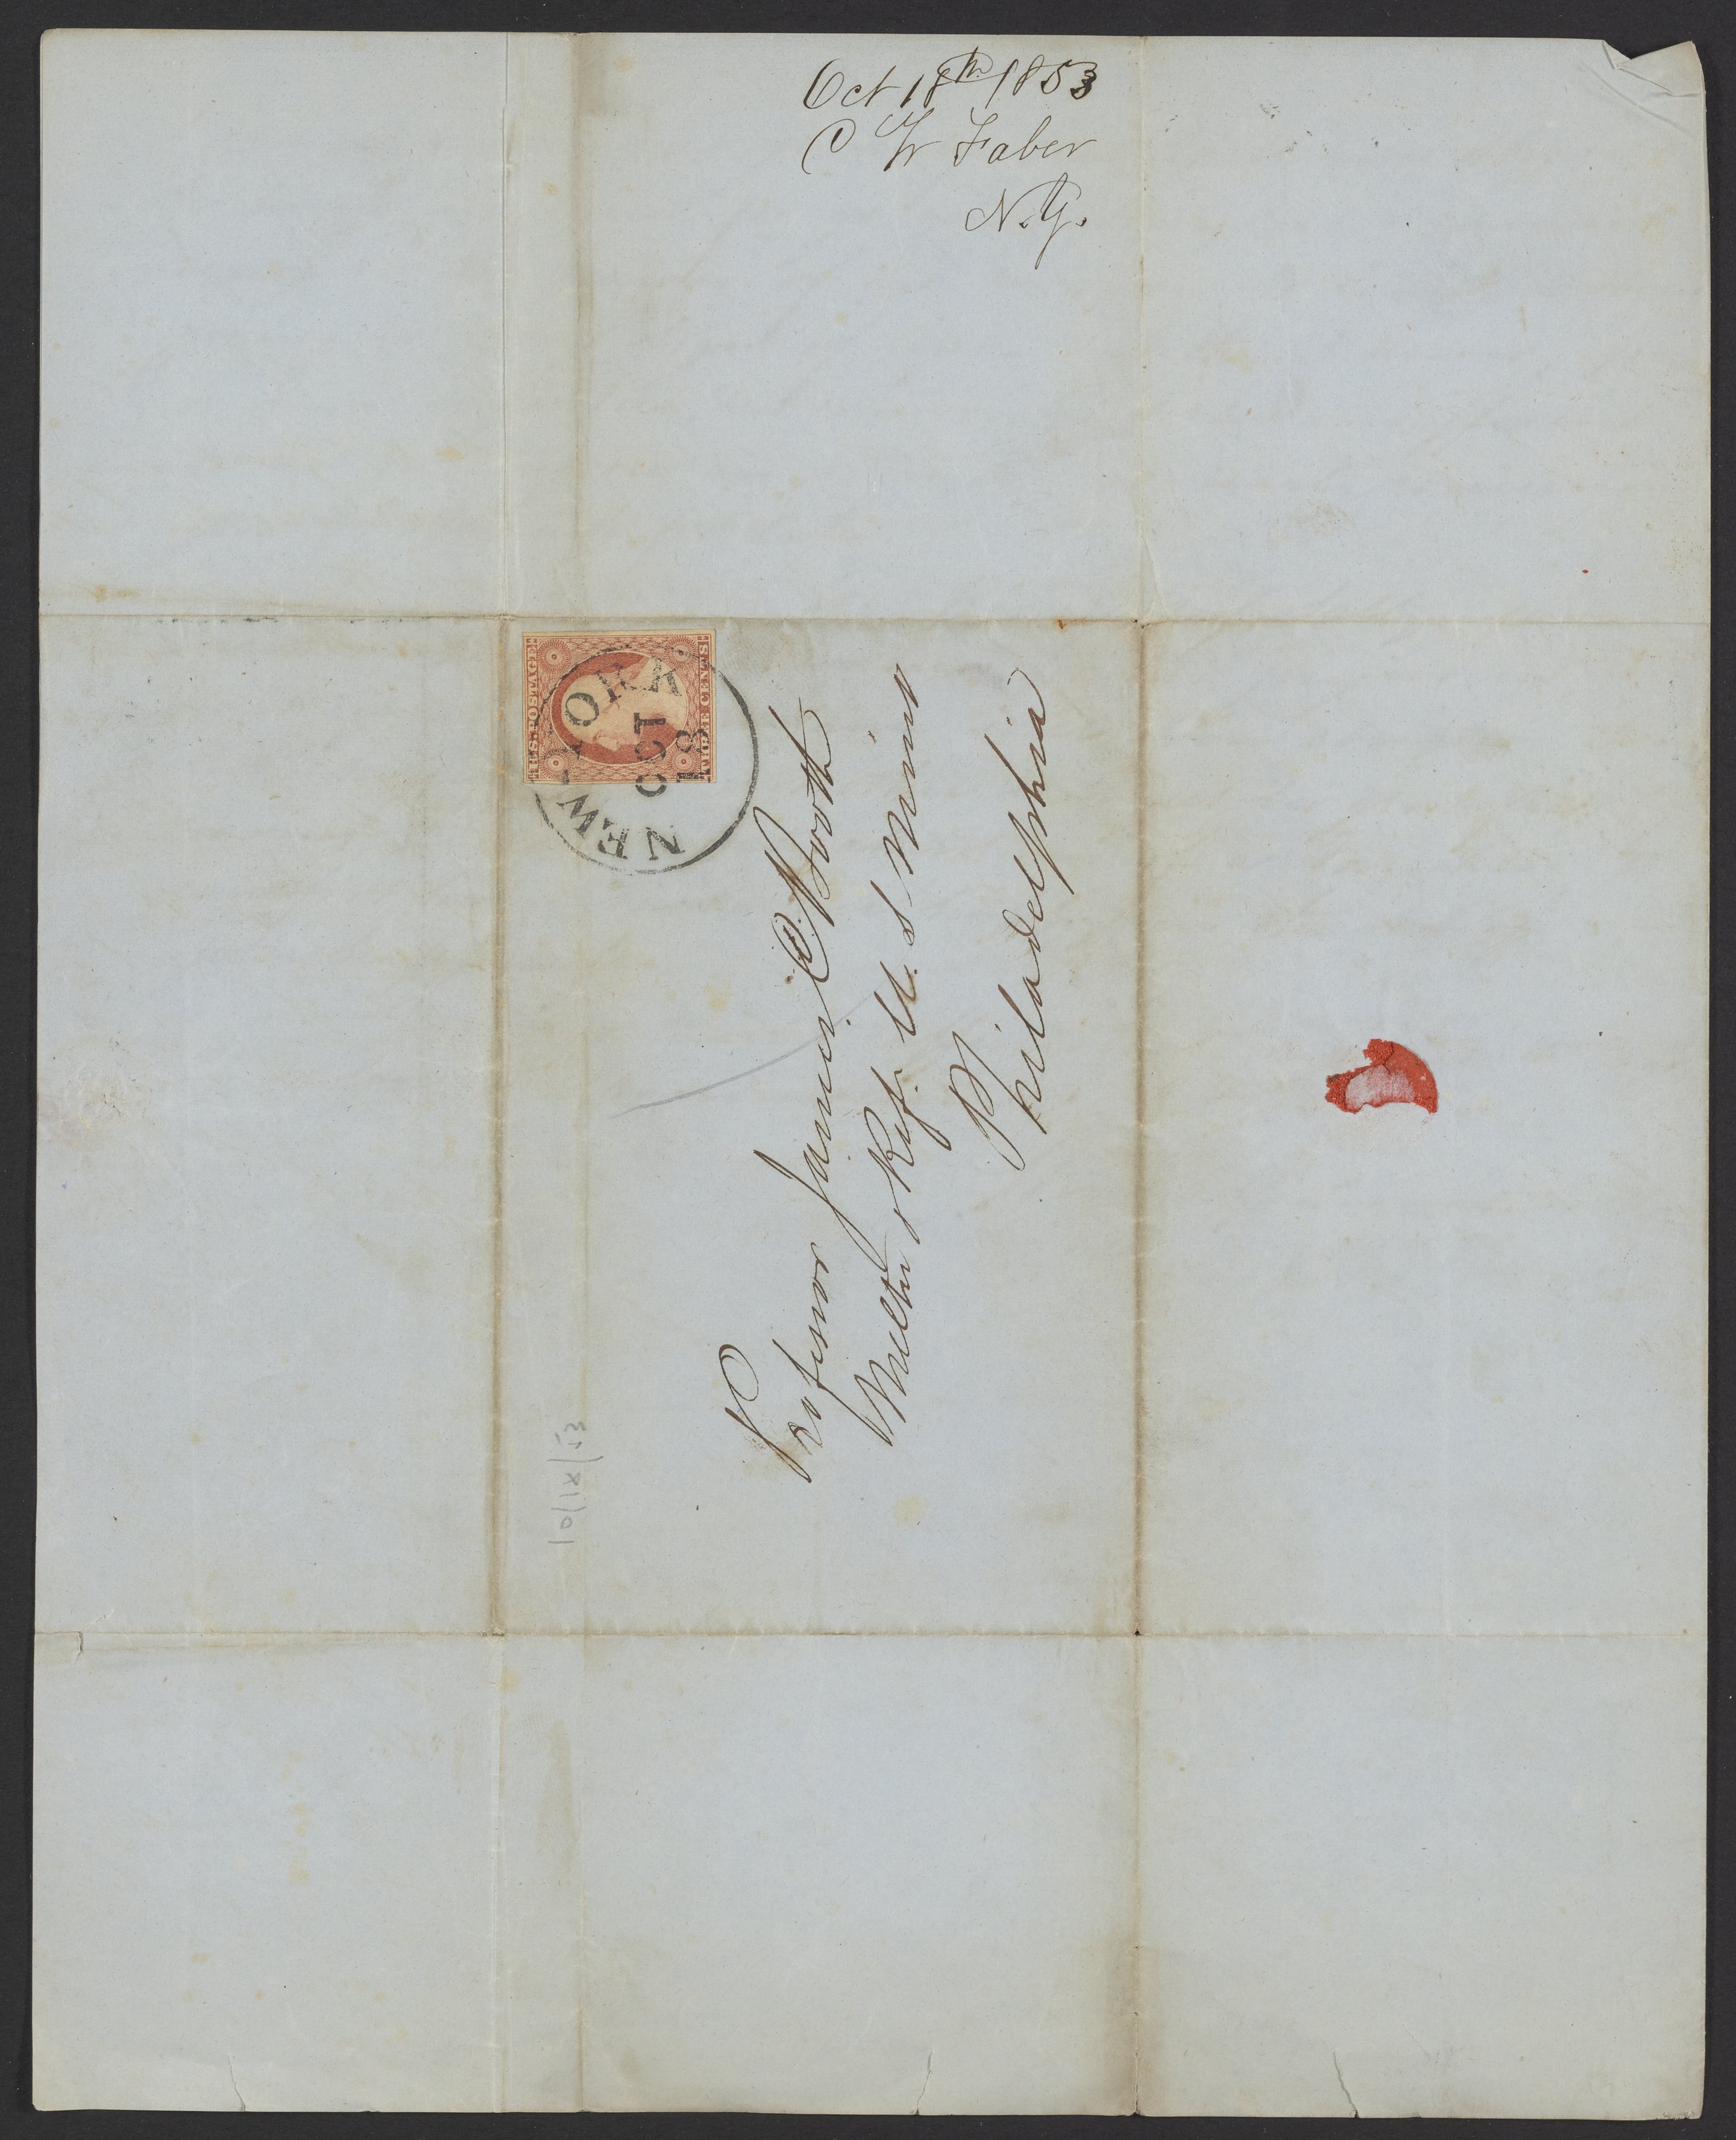 Oct 18th 1853
C W Faber
N.Y.
U.S. POSTAGE
THREE CENTS
NEW-YORK
OCT
18
Professor James C Booth
Melter & Ref. U. S Mint
Philadelphia
10/18/53